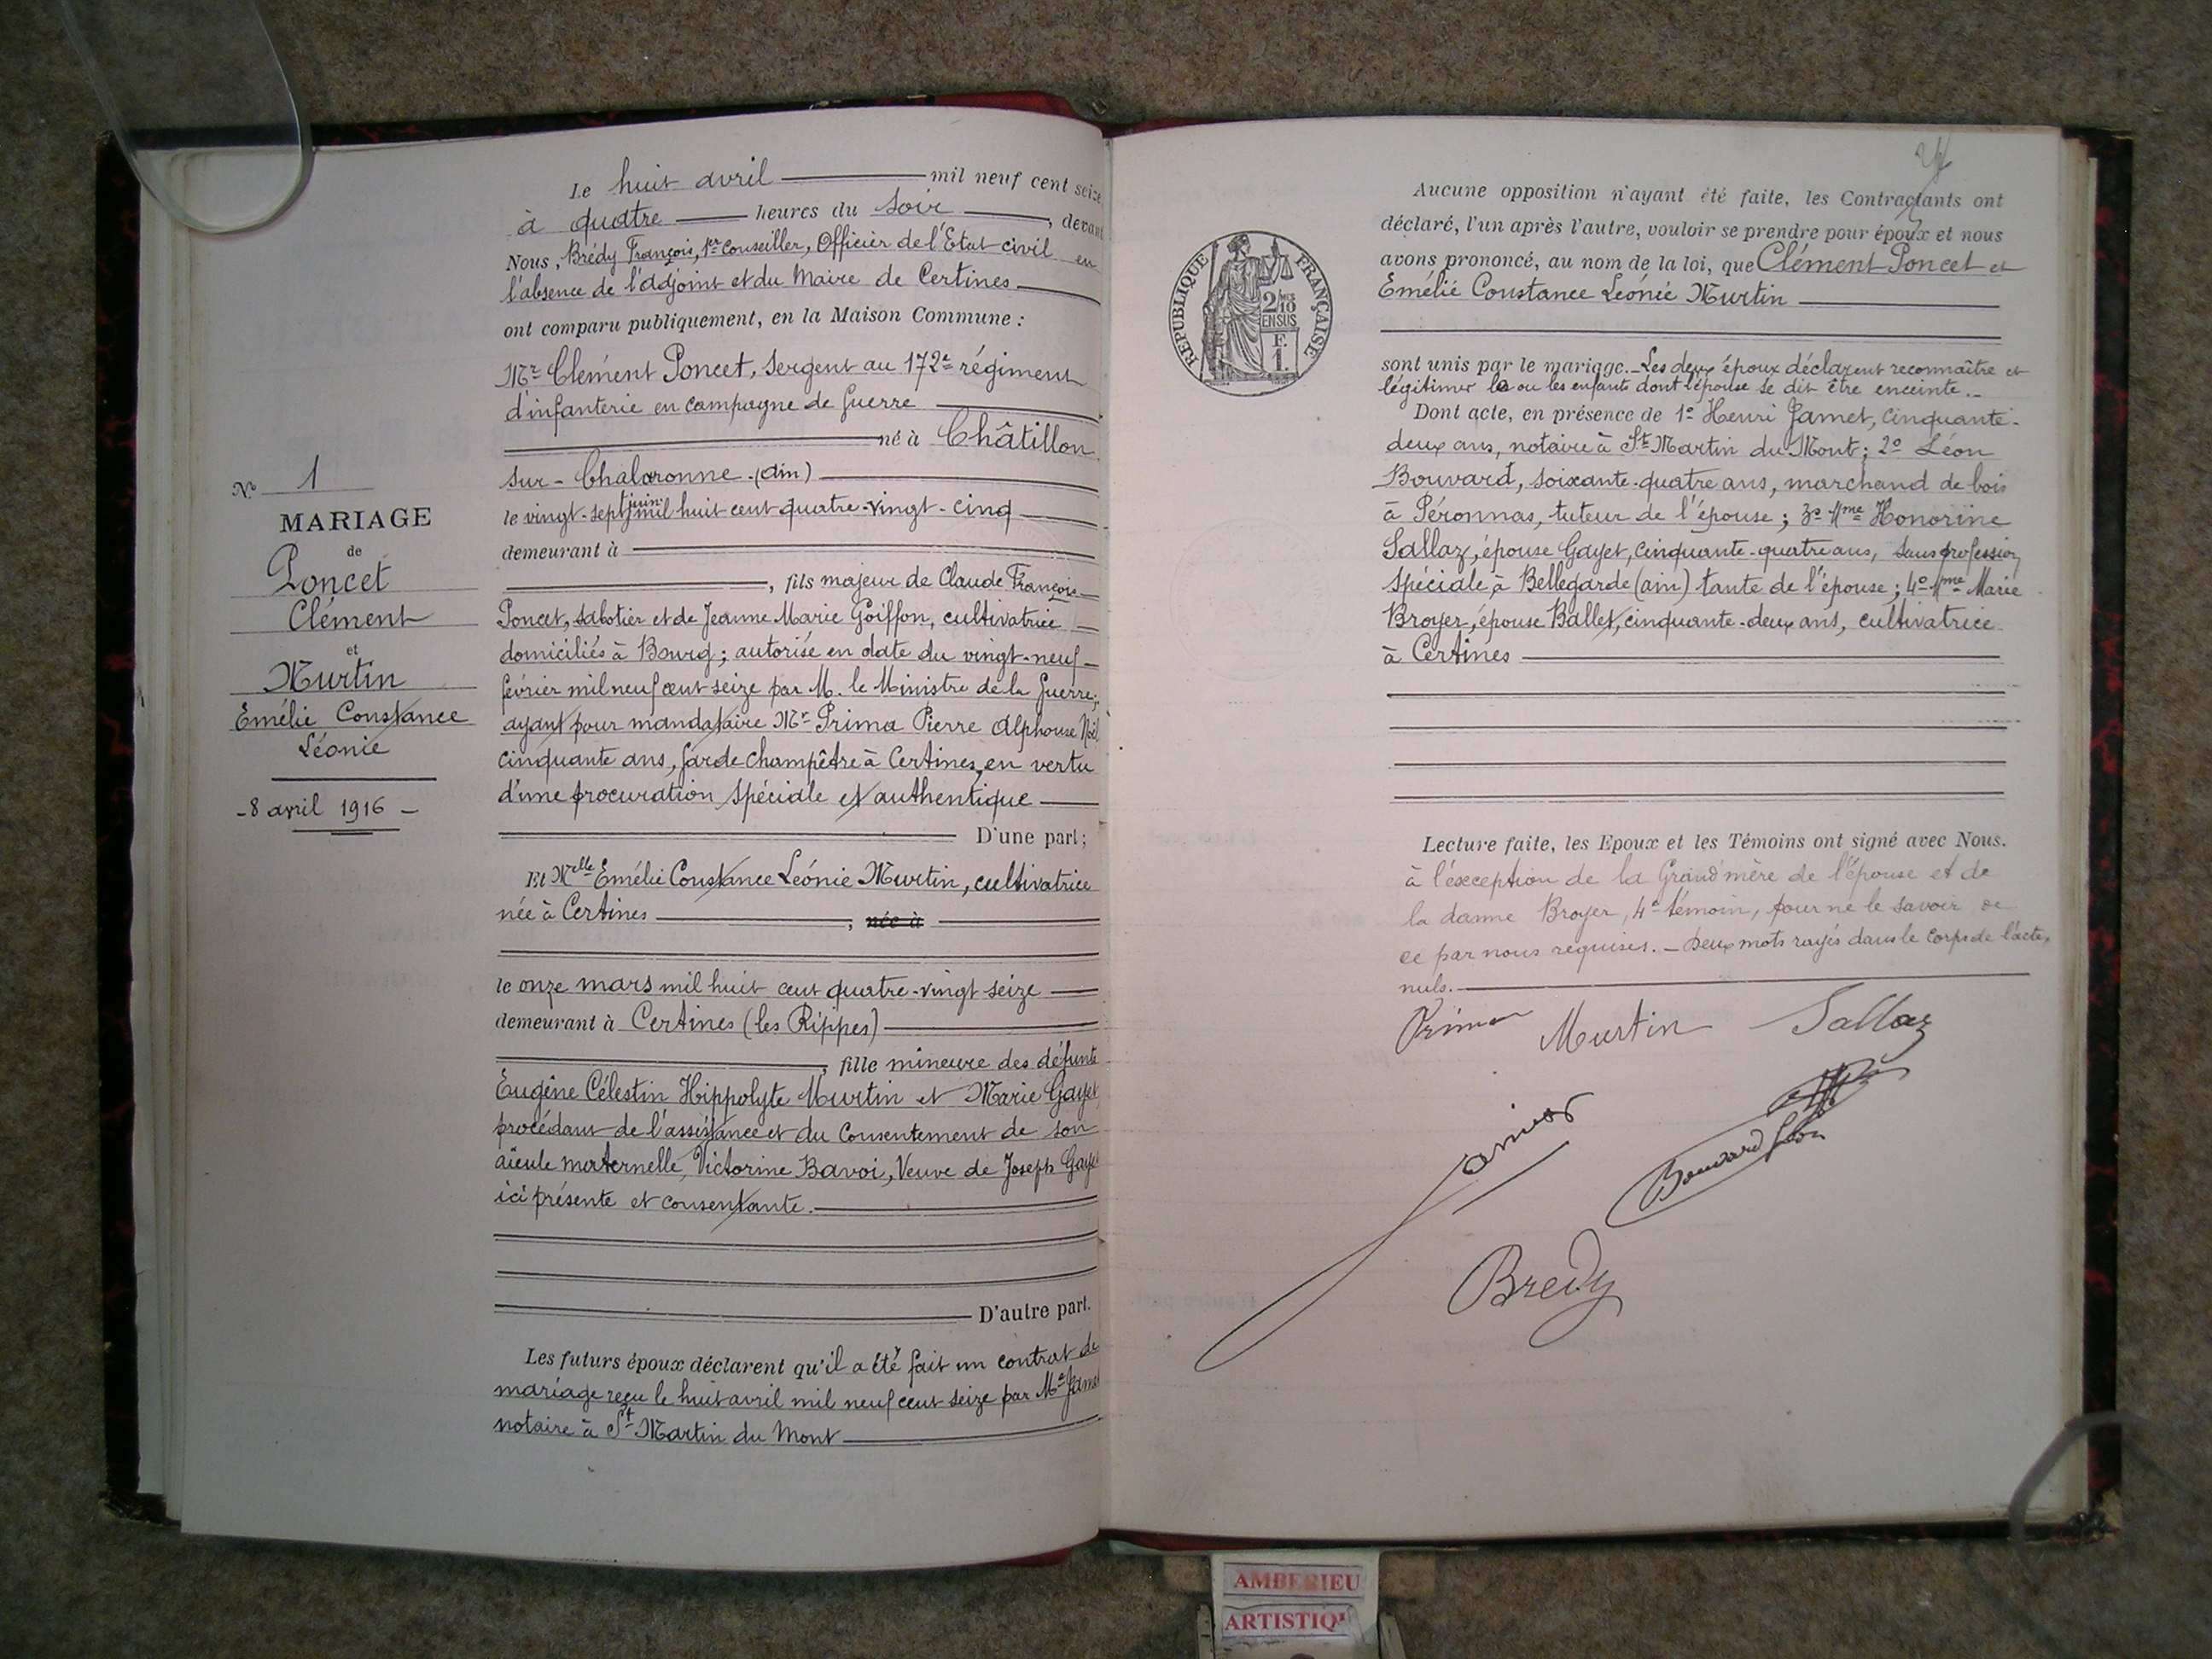 N° 1
MARIAGE
de
Poncet
Clément
et
Murtin
Emélie Constance
Léonie
- 8 avril 1916 -
Le huit avril mil neuf cent seize,
à quatre heures du soir, devant
Nous, Brédy François, 1er Conseiller, Officier de l'Etat civil en
l'absence de l'adjoint et du Maire de Certines
ont comparu publiquement, en la Maison Commune :
Mr Clément Poncet, Sergent au 172e régiment
d'infanterie en campagne de Guerre
né à Châtillon
sur-Chalaronne (ain)
le vingt-sept juin mil huit cent quatre-vingt-cinq
demeurant à
, fils majeur de Claude François
Poncet, sabotier et de Jeanne Marie Goiffon, cultivatrice
domiciliés à Bourg ; autorisé en date du vingt-neuf
février mil neuf cent seize par M. le Ministre de la Guerre,
ayant pour mandataire Mr Prima Pierre Alphonse Noël
cinquante ans, garde champêtre à Certines, en vertu
d'une procuration spéciale et authentique
D'une part;
Et Melle Emélie Constance Léonie Murtin, cultivatrice
née à Certines , née à
le onze mars mil huit cent quatre-vingt seize
demeurant à Certines (les Rippes)
, fille mineure des défunts
Eugène Célestin Hippolyte Murtin et Marie Gayet
procédant de l'assistance et du Consentement de son
aïeule maternelle, Victorine Bavoi, Veuve de Joseph Gayet
ici présente et consentante.
D'autre part.
Les futurs époux déclarent qu'il a été fait un contrat de
mariage reçu le huit avril mil neuf cent seize par Me Jamet
notaire à St Martin du Mont
REPUBLIQUE FRANÇAISE
2/10
EN SUS
F.
1.
Aucune opposition n'ayant été faite, les Contractants ont
déclaré, l'un après l'autre, vouloir se prendre pour époux et nous
avons prononcé, au nom de la loi, que Clément Poncet et
Emélie Constance Léonie Murtin
sont unis par le mariage. - Les deux époux déclarent reconnaître et
légitimer le ou les enfants dont l'épouse se dit être enceinte. -
Dont acte, en présence de 1° Henri Jamet, cinquante-
deux ans, notaire à St Martin du Mont ; 2° Léon
Bouvard, soixante-quatre ans, marchand de bois
à Péronnas, tuteur de l'épouse ; 3° Mme Honorine
Sallaz, épouse Gayet, cinquante-quatre ans, sans profession
spéciale à Bellegarde (ain) tante de l'épouse ; 4° Mme Marie
Broyer, épouse Ballet, cinquante-deux ans, cultivatrice
à Certines
Lecture faite, les Epoux et les Témoins ont signé avec Nous.
à l'exception de la Grand'mère de l'épouse et de
la dame Broyer, 4e témoin, pour ne le savoir de
ce par nous requises. - Deux mots rayés dans le corps de l'acte,
nuls.
Prima Murtin Sallaz
Bouvard Léon
Bredy
AMBERIEU
ARTISTIQU